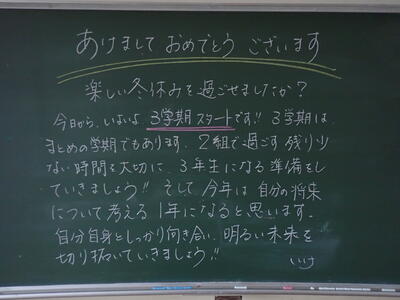 あけまして おめでとう ございます
楽しい冬休みを過ごせましたか？
今日から、いよいよ 3学期スタートです!! 3学期は、
まとめの学期でもあります。2組で過ごす 残り少
ない時間を大切に、3年生になる準備をし
ていきましょう!! そして 今年は 自分の将来
について考える 1年になると思います。
自分自身としっかり向き合い、明るい未来を
切り拓いていきましょう!!